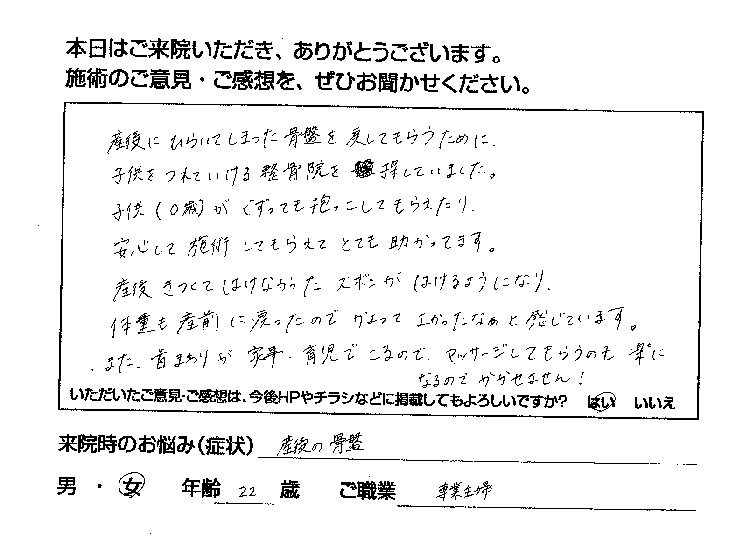 本日はご来院いただき、ありがとうございます。
施術のご意見・ご感想を、ぜひお聞かせください。
産後にひらいてしまった骨盤を戻してもらうために、
子供をつれていける整骨院を探していました。
子供(0歳)がぐずっても抱っこしてもらえたり、
安心して施術してもらえてとても助かってます。
産後きつくてはけなかったズボンがはけるようになり、
体重も産前に戻ったのでかよってよかったなぁと感じています。
また、首まわりが家事・育児でこるので、マッサージしてもらうのも楽に
なるのでかかせません!
いただいたご意見・ご感想は、今後HPやチラシなどに掲載してもよろしいですか? はい いいえ
来院時のお悩み(症状) 産後の骨盤
男・女 年齢 22 歳 ご職業 専業主婦